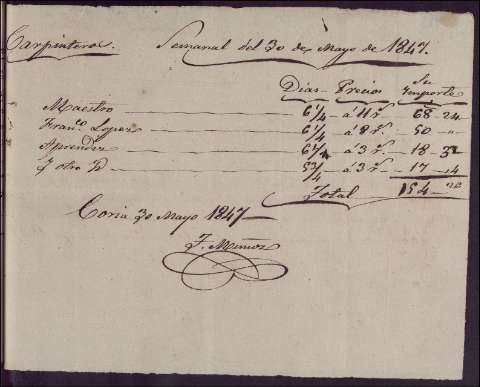 Carpinteros. Semanal del 30 de Mayo de 1847.
Dias Precios Su Importe
Maestro 6 1/4 á 11 r. 68 - 24
Franco. Lopez 6 1/4 á 8 r. 50 - "
Aprendiz 6 1/4 á 3 r. 18
Y otro Yd 5 3/4 á 3 r. 17 - 4
Total 154
Coria 30 Mayo 1847
J. Muñoz